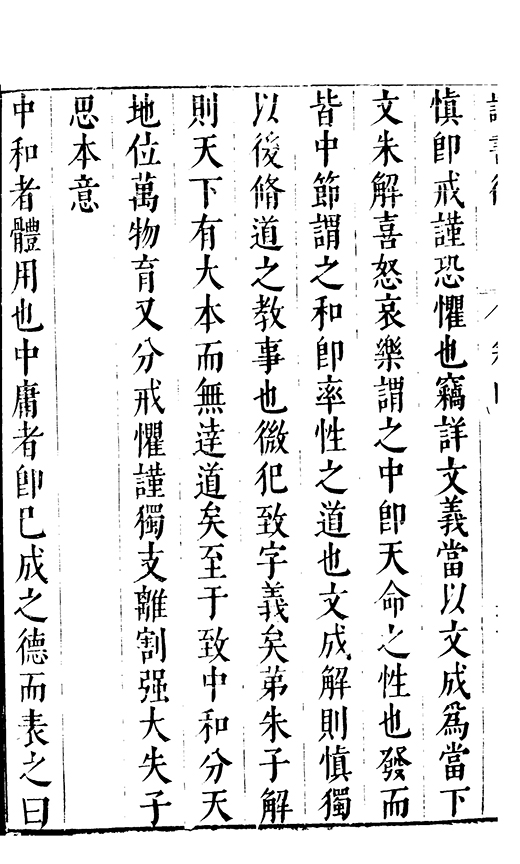 慎卽戒謹恐懼也竊詳文義當以文成爲當下
文朱解喜怒哀樂謂之中卽天命之性也發而
皆中節謂之和卽率性之道也文成解則慎獨
以後脩道之教事也微犯致字義矣苐朱子解
則天下有大本而無逹道矣至于致中和分天
地位萬物育又分戒懼謹獨支離割强大失子
思本意
中和者體用也中庸者卽已成之德而表之曰